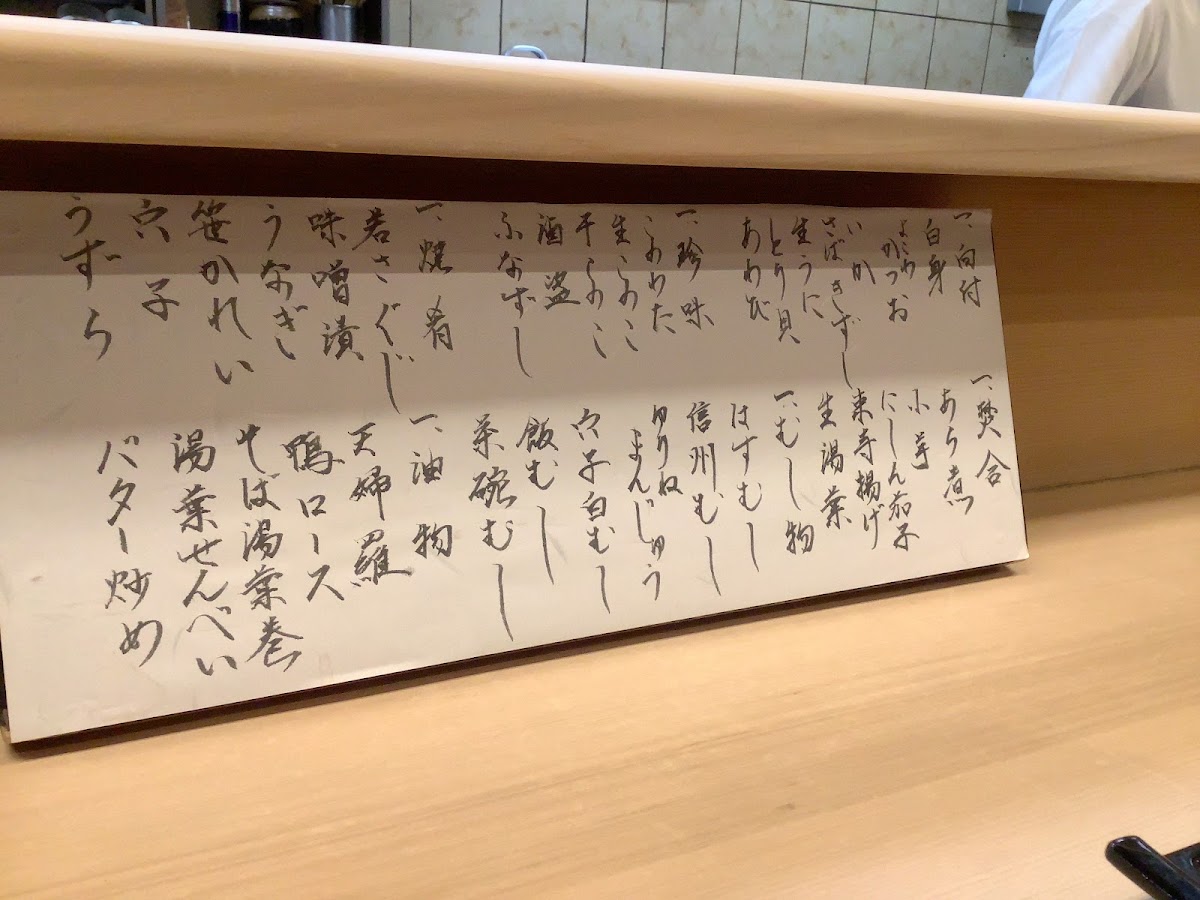 一、向付
白身
よこわ
かつお
いか
さばきずし
生うに
とり貝
あわび
一、珍味
このわた
生このこ
干しのこ
酒盗
ふなずし
一、焼肴
若さぐじ
味噌漬
うなぎ
笹かれい
穴子
うずら
一、焚合
あら煮
小芋
にしん茄子
東寺揚げ
生湯葉
一、むし物
はすむし
信州むし
ゆりね
まんじゅう
穴子白むし
飯むし
茶碗むし
一、油物
天婦羅
鴨ロース
そば湯葉巻
湯葉せんべい
バター炒め